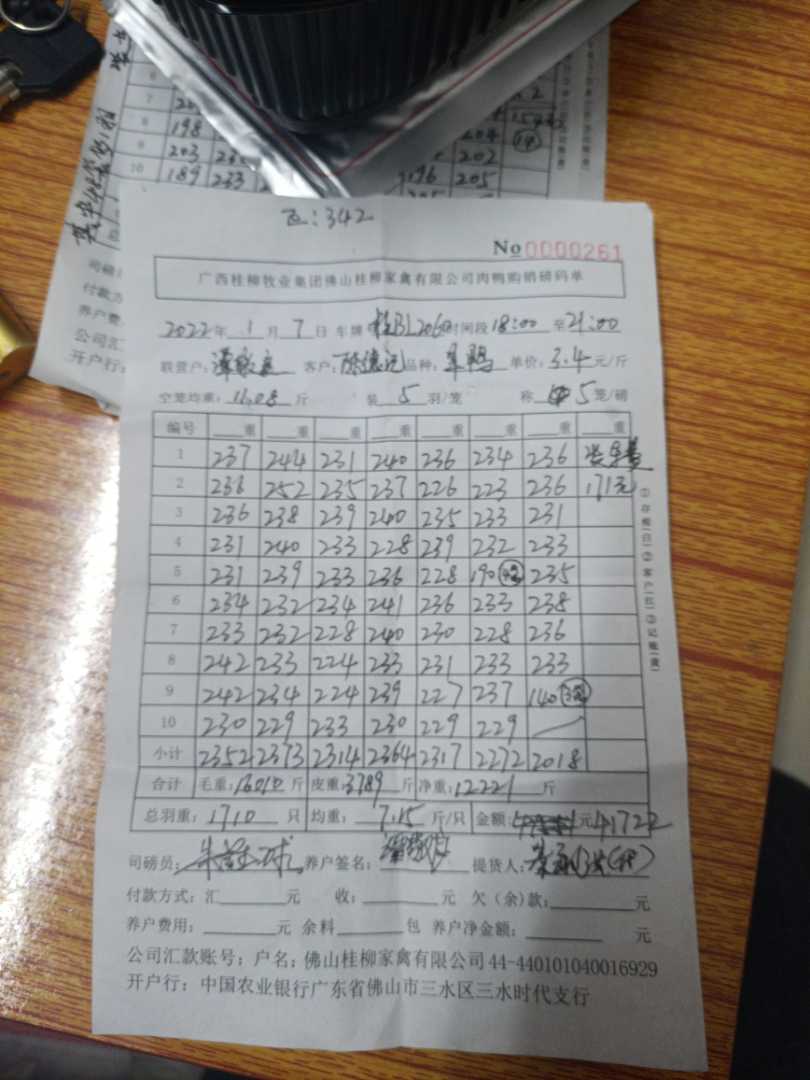 7
8 198 204
9 203 202
10 189 233 196 205
342
No 0000261
广西桂柳牧业集团佛山桂柳家禽有限公司肉鸭购销磅码单
2022年 1月 7日 车牌 2060 时间段 18:00 至 21:00
联营户: 客户: 品种: 单价: 3.4 元/斤
空笼均重: 11.08 斤 装 5 羽/笼 称 5 笼/磅
编号 重 重 重 重 重 重 重 重
1 237 244 231 240 236 234 236
2 236 252 235 237 226 223 236 171元
3 236 238 239 240 235 233 231
4 231 240 233 228 239 232 233
5 231 239 233 236 228 190 235
6 234 232 234 241 236 233 238
7 233 232 228 240 230 228 236
8 242 233 224 233 231 233 233
9 242 234 224 239 227 237 140
10 230 229 233 230 229 229
小计 2352 2373 2314 2364 2317 2272 2018
合计 毛重: 16010 斤 皮重: 3789 斤 净重: 12221 斤
总羽重: 1710 只 均重: 7.15 斤/只 金额: 元 41722
司磅员: 养户签名: 提货人:
付款方式: 汇 元 收: 元 欠(余)款: 元
养户费用: 元 余料 包 养户净金额: 元
公司汇款账号: 户名: 佛山桂柳家禽有限公司 44-440101040016929
开户行: 中国农业银行广东省佛山市三水区三水时代支行
①存根(白)②客户(红)③记账(黄)
司磅
付款方
养户费
公司汇
开户行: